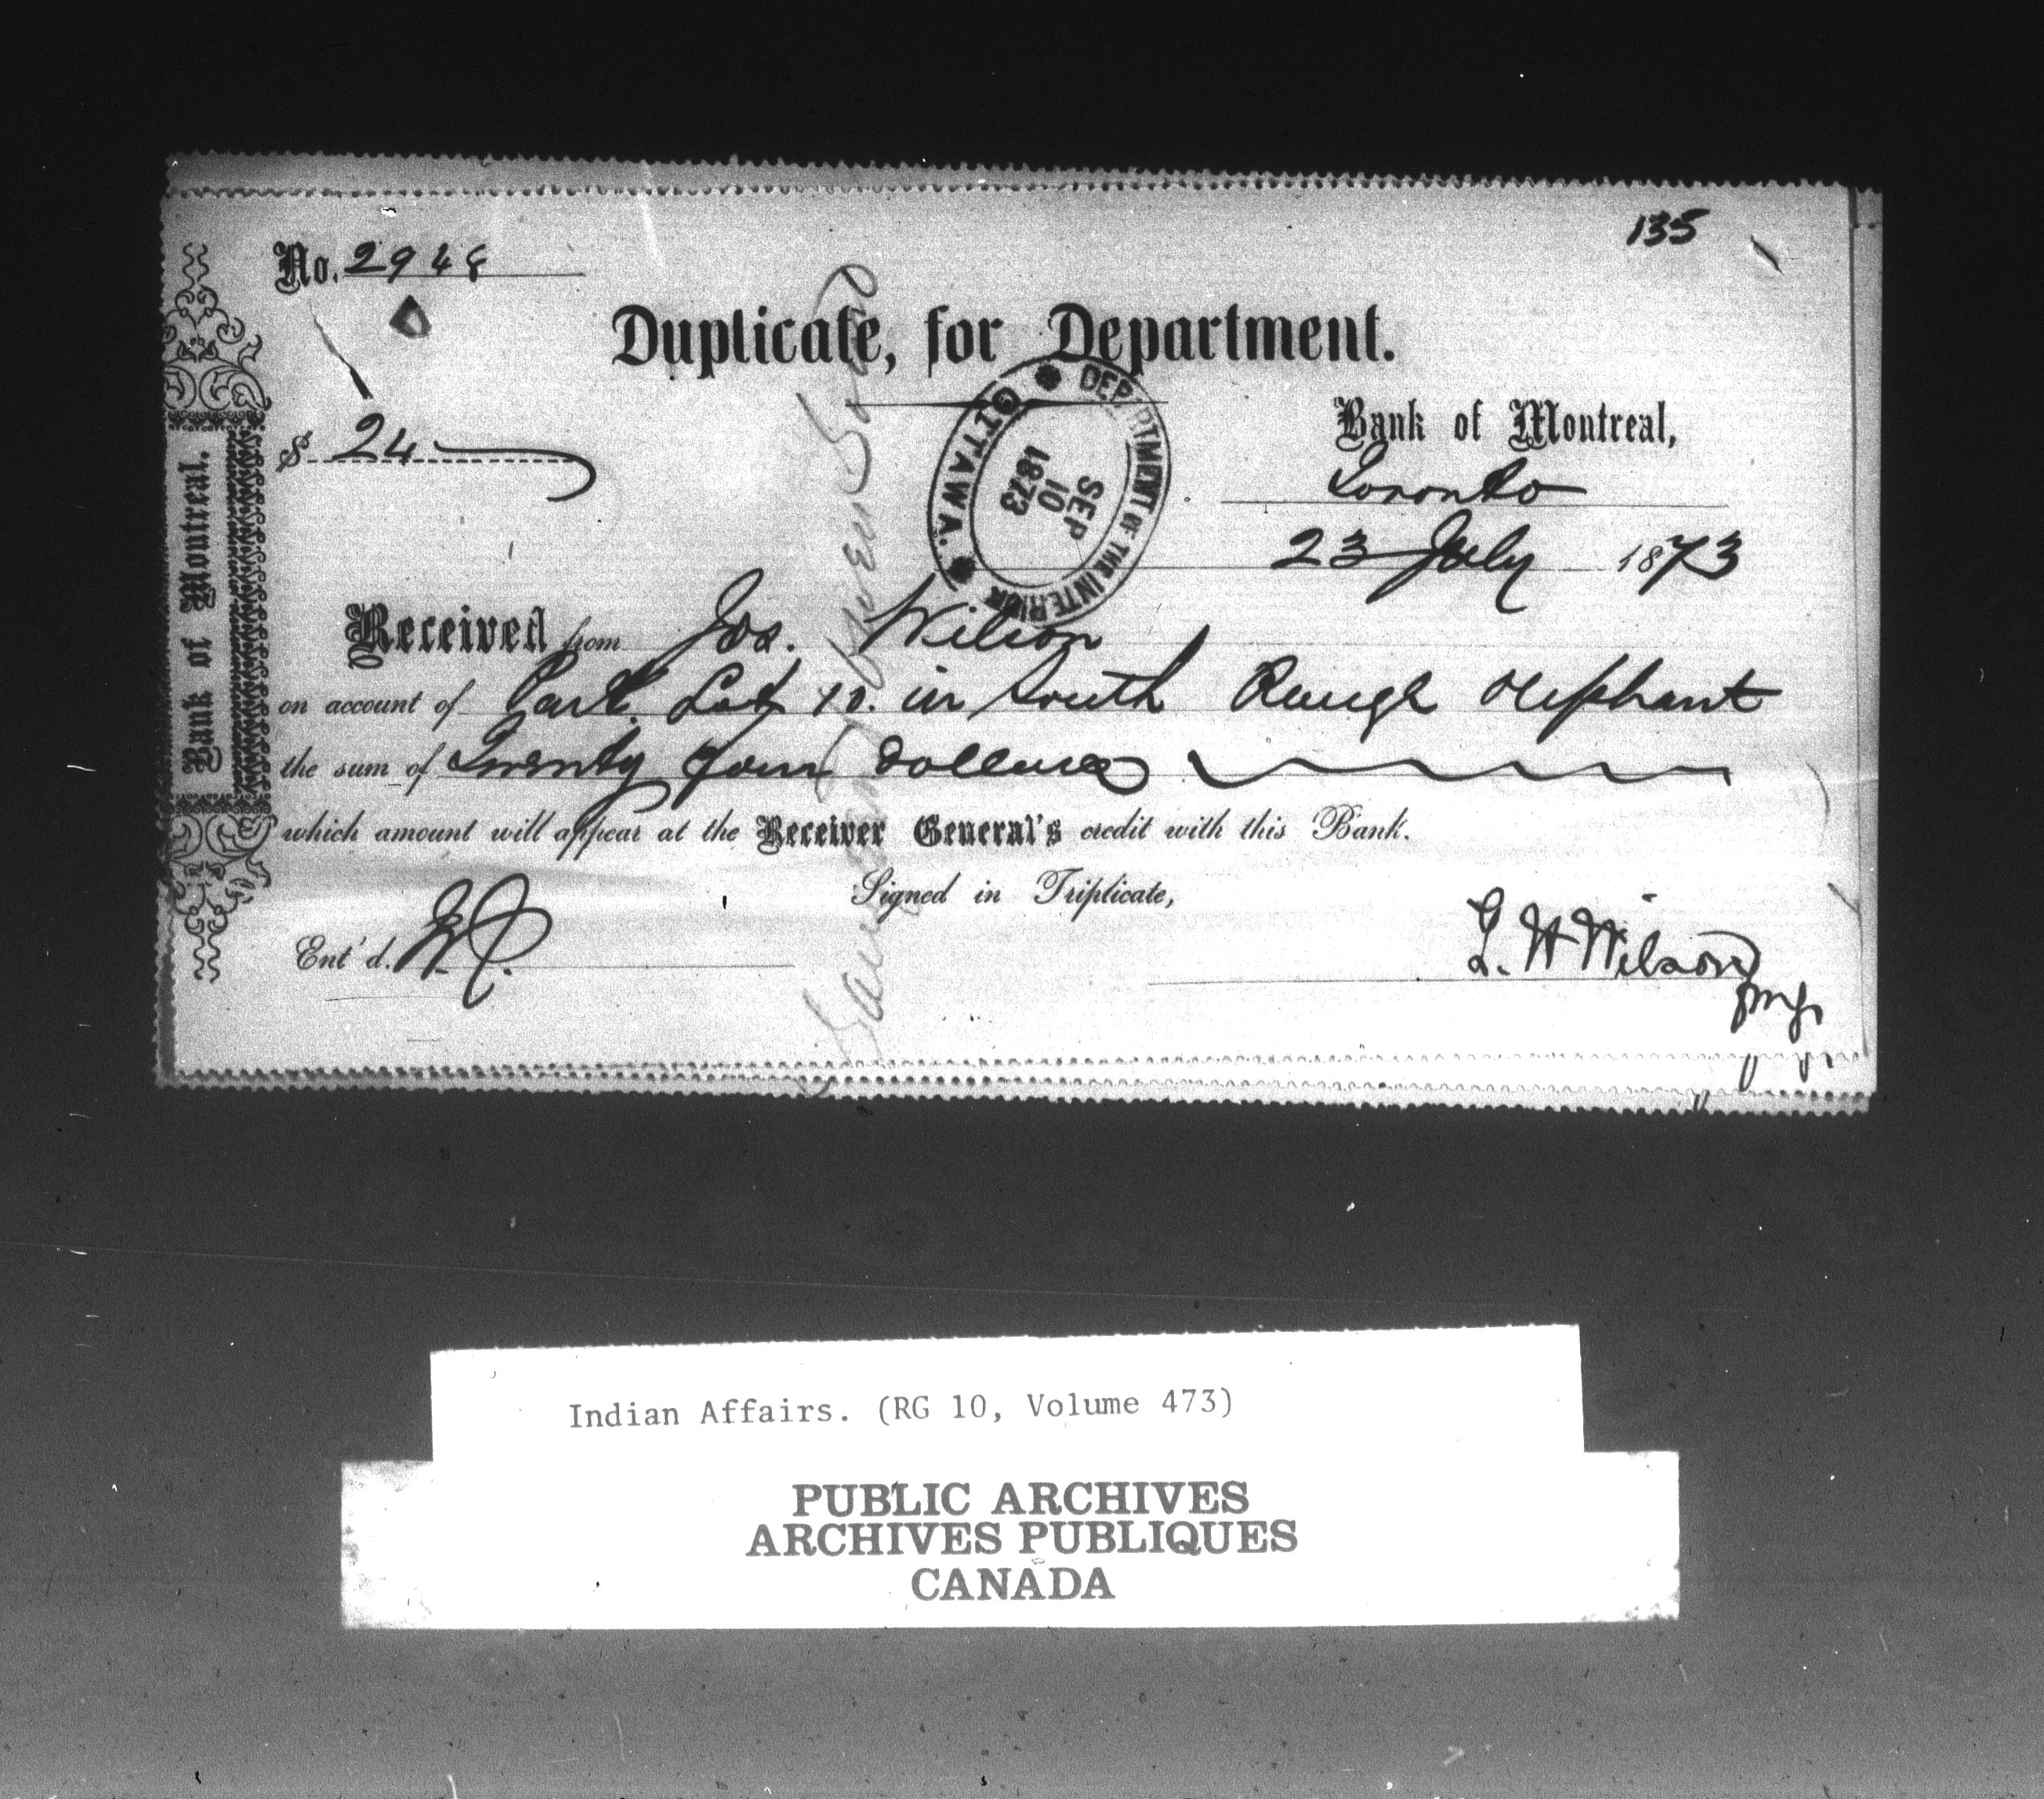 135
No. 2948
Duplicate, for Department.
$ 24
DEPARTMENT OF THE INTERIOR
OTTAWA.
SEP
10
1873
Bank of Montreal,
Toronto
23 July 1873
Received from Jos. Wilson
on account of Park Lot 10. in South Range Oliphant
the sum of Twenty four Dollars
which amount will appear at the Receiver General's credit with this Bank.
Signed in Triplicate,
Ent'd.
Wilson
Bank of Montreal.
Indian Affairs. (RG 10, Volume 473)
PUBLIC ARCHIVES
ARCHIVES PUBLIQUES
CANADA